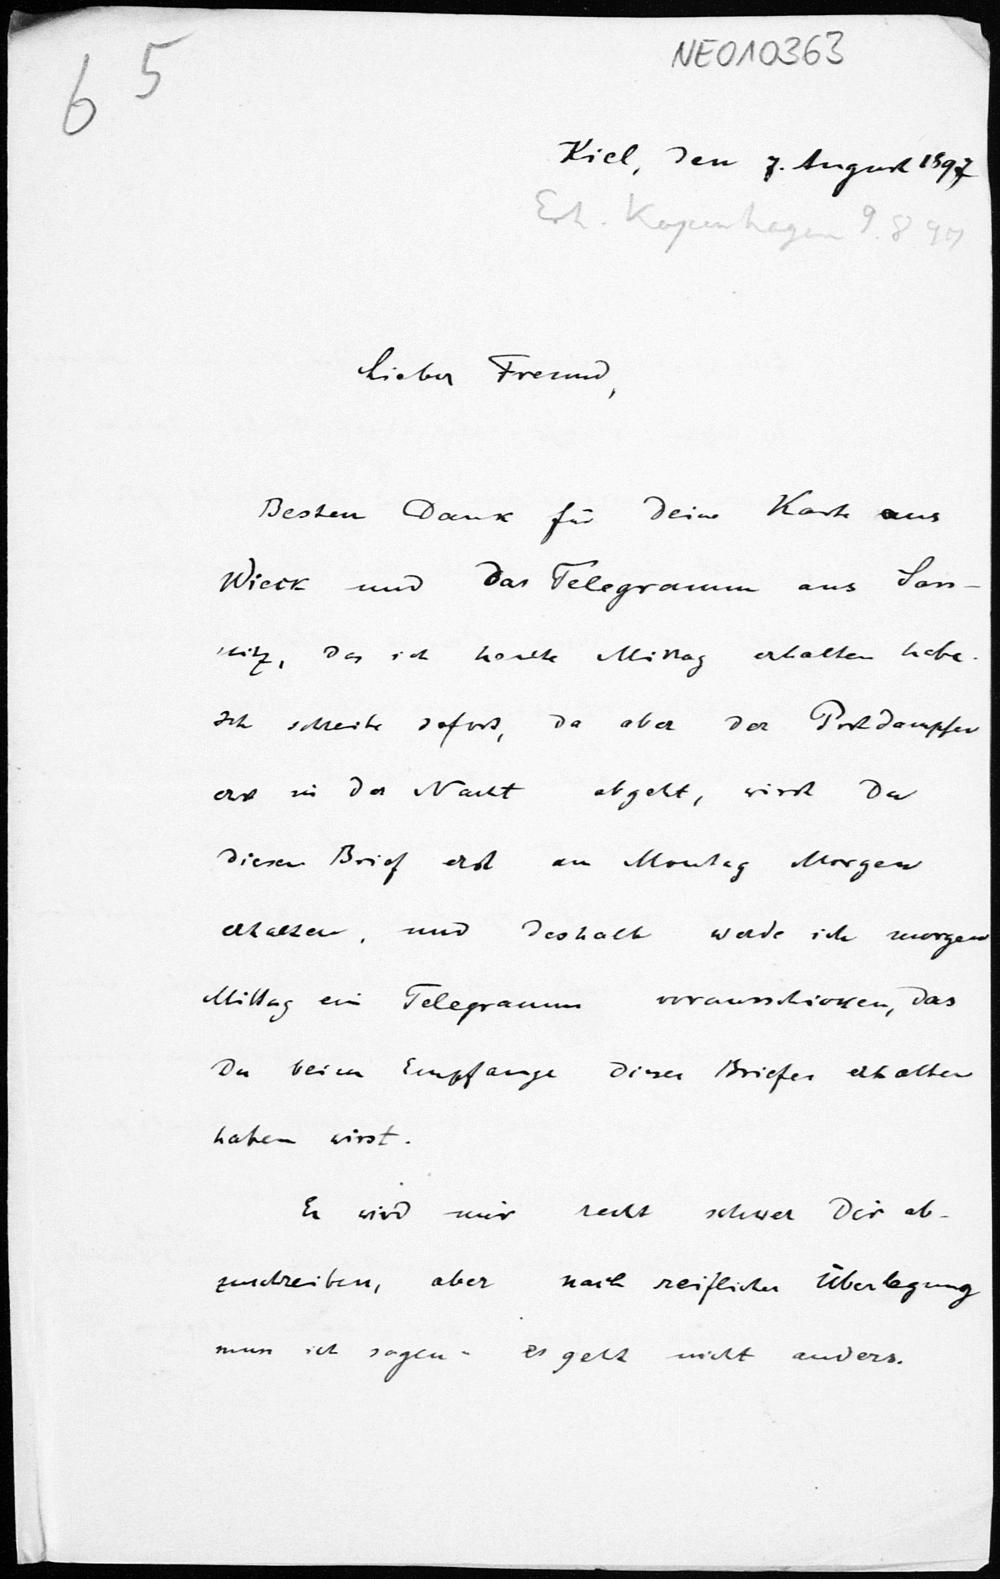 6 5
NE010363
Kiel, den 7. August 1897
Erh. Kopenhagen 9.8 97
Lieber Freund,
Besten Dank für Deine Karte aus
Wieck und das Telegramm aus Sass-
nitz, das ich heute Mittag erhalten habe.
Ich schreibe sofort, da aber der Postdampfer
erst in der Nacht abgeht, wirst Du
diesen Brief erst am Montag Morgen
erhalten, und deshalb werde ich morgen
Mittag ein Telegramm vorausschicken, das
Du beim Empfange dieses Briefes erhalten
haben wirst.
Es wird mir recht schwer Dir ab-
zuschreiben, aber nach reiflicher Überlegung
muss ich sagen - es geht nicht anders.